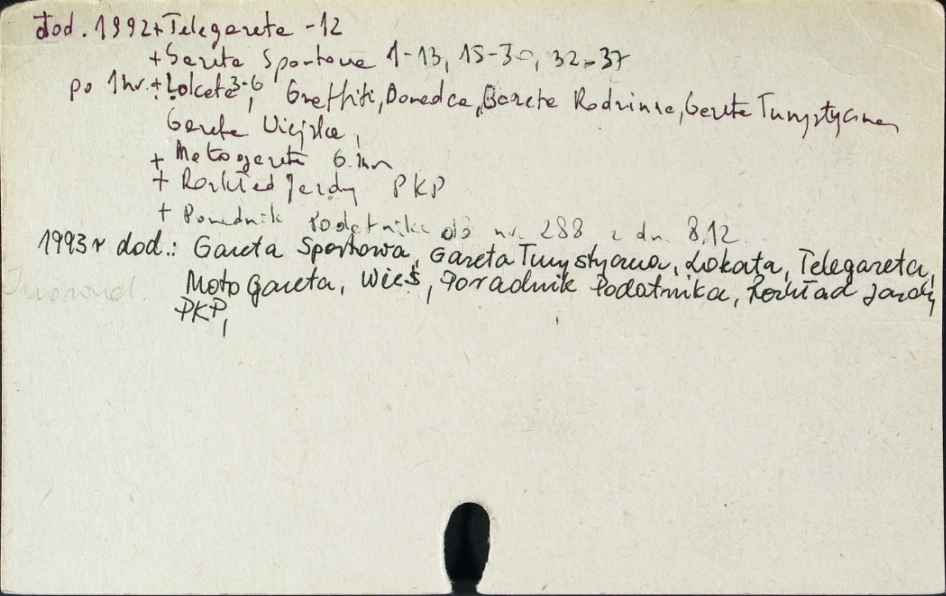 dod. 1992 + Telegazeta - 12
+ Gazeta Sportowa 1-13, 15-30, 32-37
po 1 nr. + Lokata 3-6, Graffiti, Doradca, Gazeta Rodzinna, Gazeta Turystyczna
Gazeta Wiejska,
+ Motogazeta 6. nr
+ Rozkład Jazdy PKP
+ Poradnik Podatnika do nr. 288 z dn. 8.12
1993 r dod.: Gazeta Sportowa, Gazeta Turystyczna, Lokata, Telegazeta,
Moto Gazeta, Wieś, Poradnik Podatnika, Rozkład Jazdy
PKP,